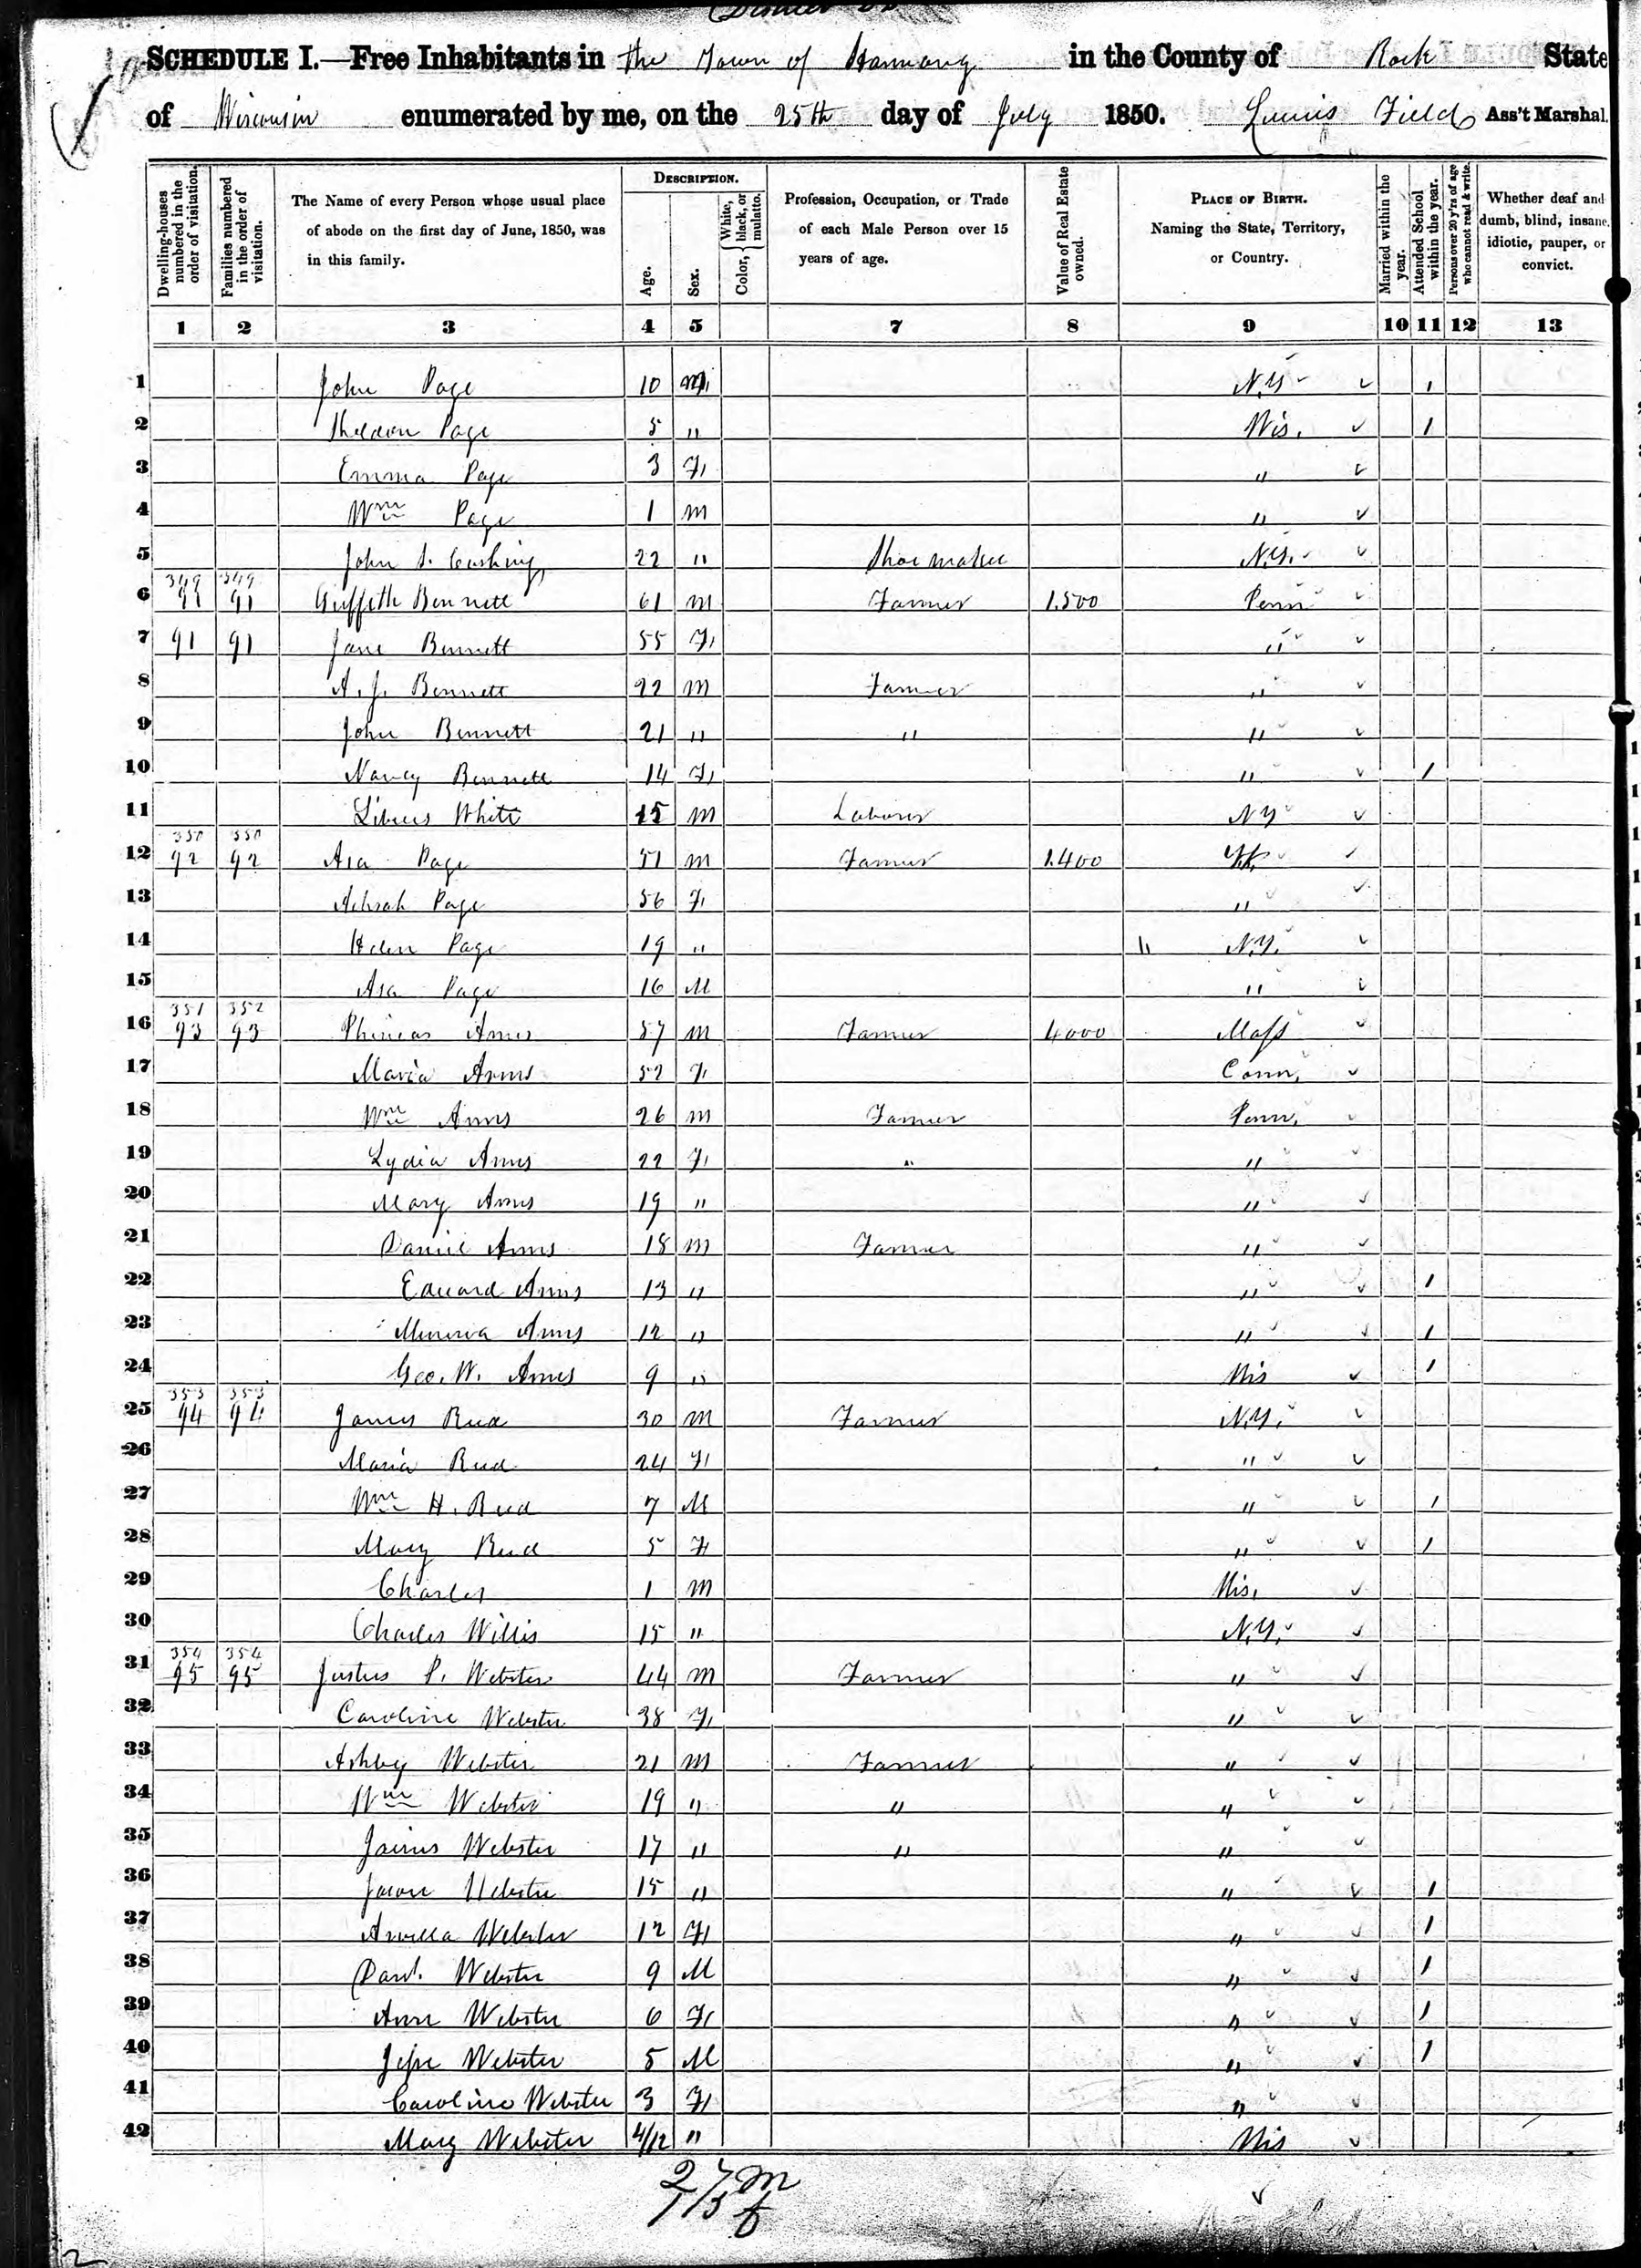 SCHEDULE I.—Free Inhabitants in the Town of Harmony in the County of Rock State
of Wisconsin enumerated by me, on the 25th day of July 1850. Field Ass't Marshal.
Dwelling-houses numbered in the order of visitation.
Families numbered in the order of visitation.
The Name of every Person whose usual place of abode on the first day of June, 1850, was in this family.
DESCRIPTION.
Age.
Sex.
Color, { White, black, or mulatto.
Profession, Occupation, or Trade of each Male Person over 15 years of age.
Value of Real Estate owned.
PLACE OF BIRTH. Naming the State, Territory, or Country.
Married within the year.
Attended School within the year.
Persons over 20 y'rs of age who cannot read & write.
Whether deaf and dumb, blind, insane, idiotic, pauper, or convict.
1 2 3 4 5 7 8 9 10 11 12 13
1 John Page 10 M N.Y. 1
2 Page 5 " Wis. 1
3 Emma Page 3 F "
4 Wm Page 1 M "
5 John S. Cushing 22 " Shoe maker N.Y.
349 349
6 91 91 Griffith Bennett 61 M Farmer 1.500 Penn
7 91 91 Jane Bennett 55 F "
8 A. J. Bennett 22 M Farmer "
9 John Bennett 21 " " "
10 Nancy Bennett 14 F " 1
11 White M Laborer N.Y
350 350
12 92 92 Asa Page 51 M Farmer 1.400 Vt.
13 Page 56 F "
14 Helen Page 19 " " N.Y.
15 Asa Page 16 M "
351 352
16 93 93 Phineas Ames 57 M Farmer 4000 Mass
17 Maria Arms 52 F Conn.
18 Wm Arms 26 M Farmer Penn.
19 Lydia Arms 22 F " "
20 Mary Arms 19 " "
21 Daniel Arms 18 M Farmer "
22 Edward Arms 13 " " 1
23 Minerva Arms 12 " " 1
24 Geo. W. Arms 9 " Wis 1
353 353
25 94 94 James Reed 30 M Farmer N.Y.
26 Maria Reed 24 F "
27 Wm H. Reed 7 M " 1
28 Mary Reed 5 F " 1
29 Charles 1 M Wis.
30 Charles Willis 15 " N.Y.
354 354
31 95 95 Justus P. Webster 44 M Farmer "
32 Caroline Webster 38 F "
33 Ashby Webster 21 M Farmer "
34 Wm Webster 19 " " "
35 Jairus Webster 17 " " "
36 Webster 15 " " 1
37 Arvilla Webster 12 F " 1
38 Danl. Webster 9 M " 1
39 Ann Webster 6 F " 1
40 Jesse Webster 5 M " 1
41 Caroline Webster 3 F "
42 Mary Webster 4/12 " Wis
27 m
15 f